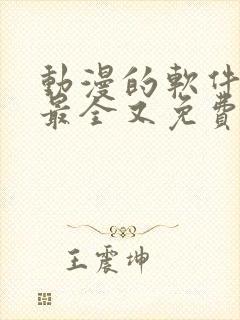 動漫的軟件
最全又免費
王震坤